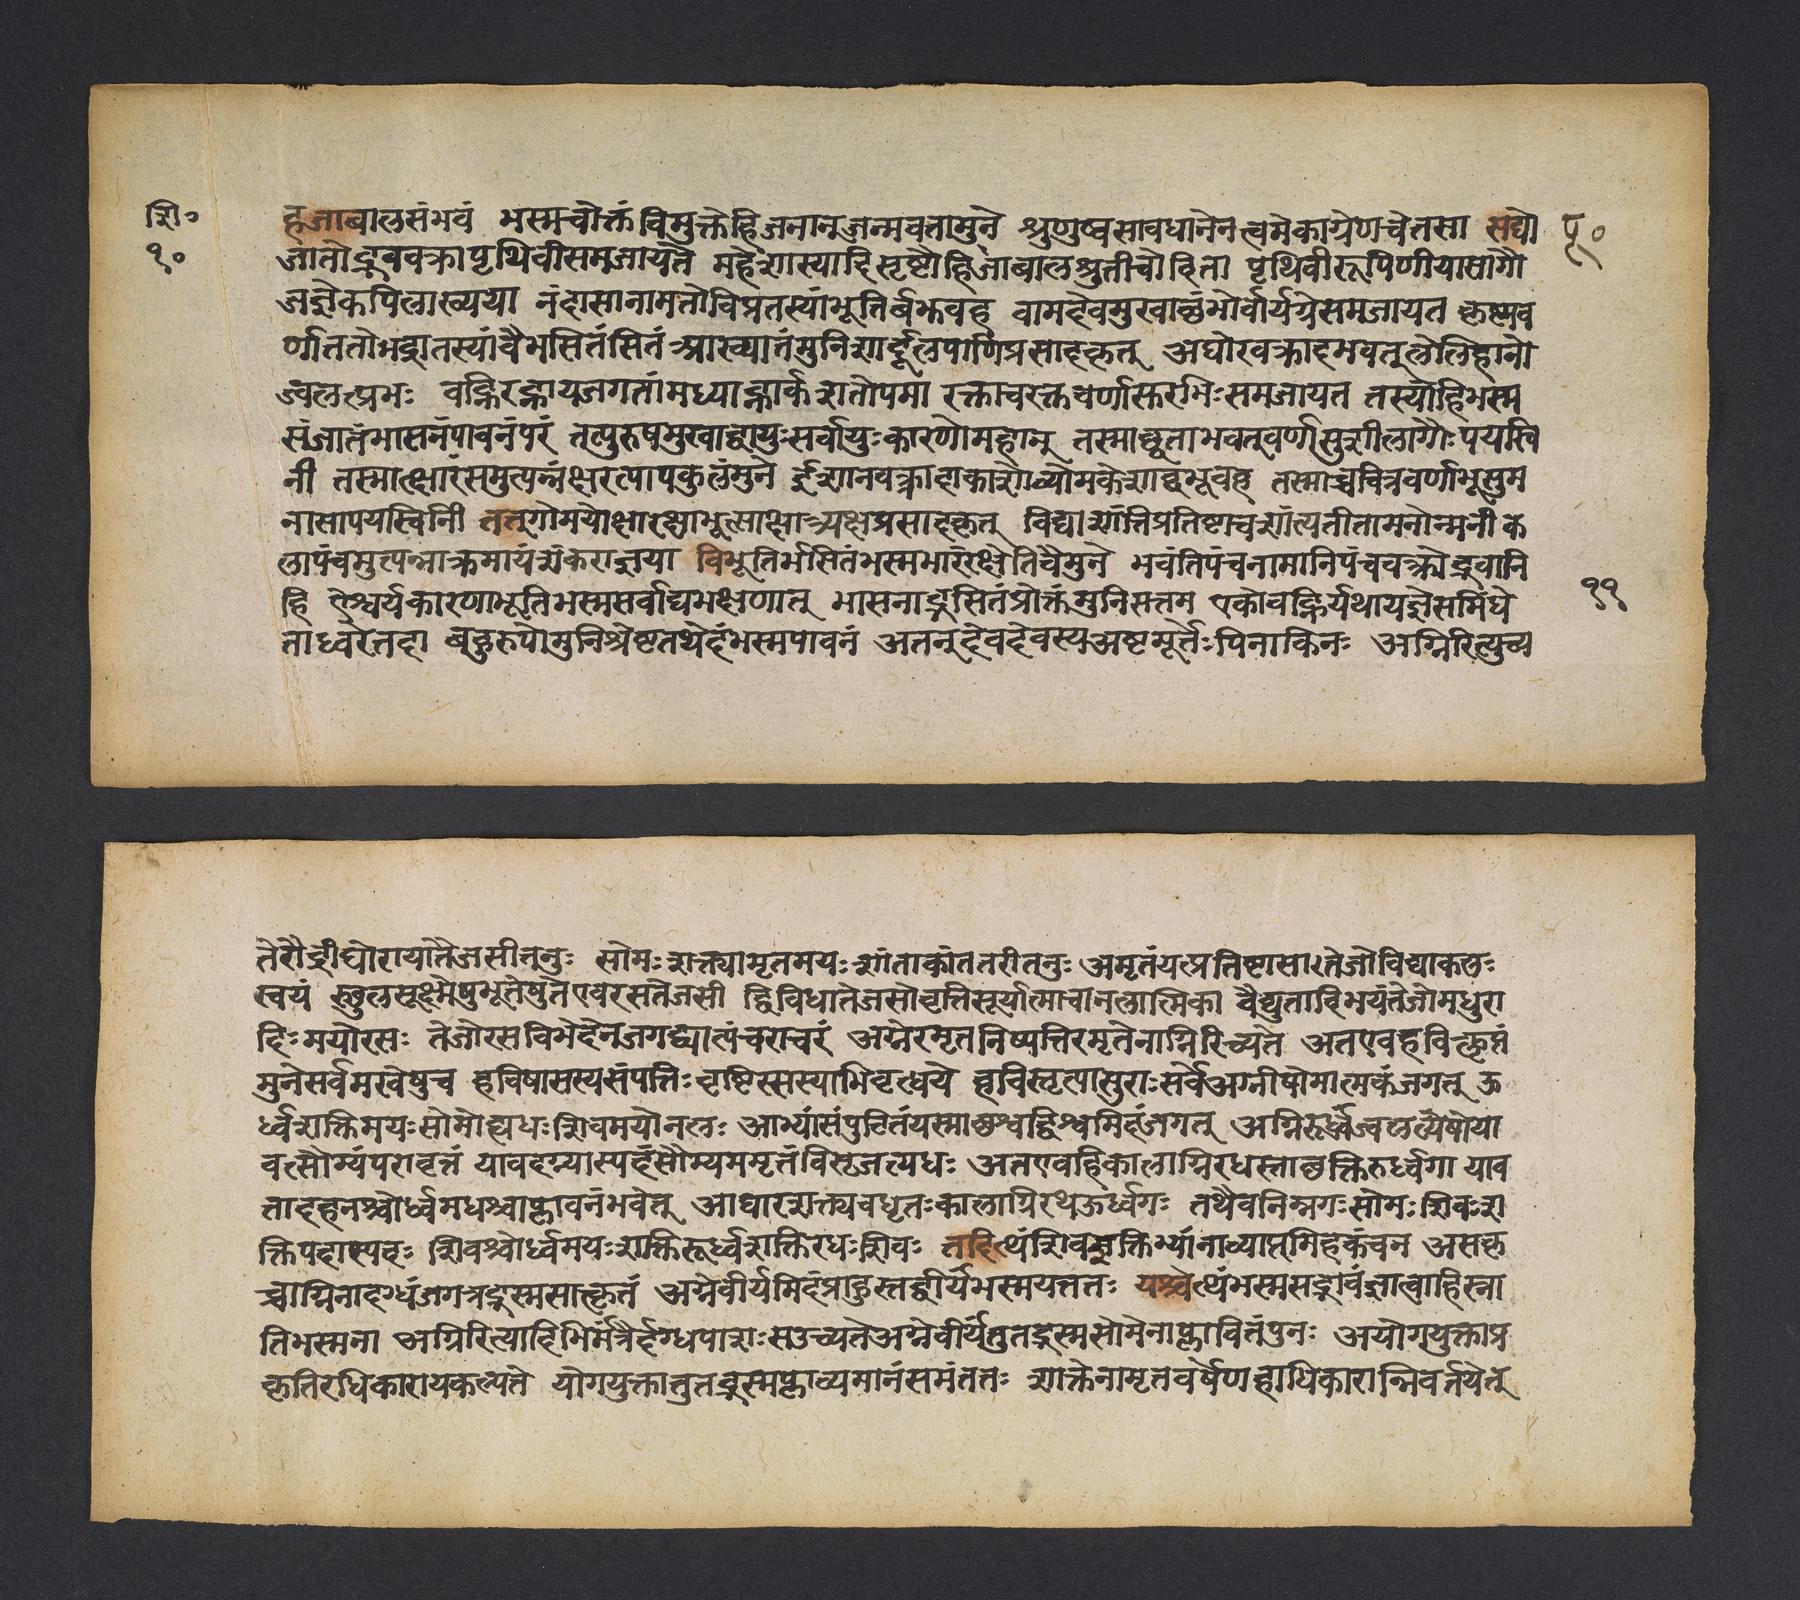 शि॰
१०
हजाबालसंभवं भस्मचोक्तं विमुक्तेहिजनानुजन्मवतामुने श्रुणुष्वसावधानेनत्वमेकाग्रेणचेतसा सद्यो
पू॰
जातोद्भववक्त्रापृथिवीसमजायते महेशास्याहिसृष्टौहिजाबालश्रुतीचोहिता पृथिवीरूपिणीयासागौ
जज्ञेकपिलाख्यया नंदासानामतोविप्रतस्यांभूतिर्बभवह वामदेवमुखाच्छंभोर्वार्यग्रेसमजायत कृष्णव
र्णाततोभद्रातस्यांवैभसितंसितं आख्यातंमुनिशार्दूलपाणिप्रसादकृत् अघोरवक्त्रादभवत्लेलिहानो
ज्वलत्प्रभः वह्निरह्नायजगतांमध्याह्नार्कशतोपमा रक्ताचरक्तवर्णासुरभिःसमजायत तस्यांहिभस्म
संजातंभासनंपावनंपरं तत्पुरुषमुखाद्वायुःसर्वायुःकारणोमहान् तस्माच्छ्वेताभवत्वर्णसुशीलागौःपयस्वि
नी तस्मात्क्षारंसमुत्पन्नंक्षरत्पापकुलंमुने ईशानवक्त्रादाकाशोव्योमकेशाद्बभूवह तस्माच्चचित्रवर्णाभूसुम
नासापयस्विनी तत्गोमयोक्षारक्षाभूत्साक्षात्त्र्यक्षप्रसादकृत् विद्याशांतिप्रतिष्टाचशांत्यतीतामनोन्मनी क
लापंचमुत्पन्नाक्रमायंशंकराज्ञया विभूतिर्भसितंभस्मभारंक्षेतिचैमुने भवंतिपंचनामानिपंचवक्त्रोद्भवानि
हि ऐश्वर्यकारणाभूतिभस्मसर्वाघभक्षणात् भासनाद्भसितंप्रोक्तंमुनिसत्तम एकोवह्निर्यथायज्ञेसमिंघे
११
ताध्वरेतदा बहुरूपोमुनिश्रेष्टतथेदंभस्मपावनं अतनुदेवदेवस्यअष्टमूर्तेःपिनाकिनः अग्निरित्युच्य
तेरौद्रीघोरायातैजसीतनुः सोमःशक्त्यामृतमयःशांताकांततरीतनुः अमृतंयत्प्रतिष्टासातेजोविद्याकलाः
स्वयं स्थुलसूक्ष्मेषुभूतेषुतएवरसतेजसी द्विविधातेजसोवृत्तिसूर्यात्माचानलात्मिका वैद्युतादिभयंतेजोमधुरा
दिःमयोरसः तेजोरसविभेदेनजगद्व्याप्तंचराचरं अग्नेरमृतनिष्पत्तिरमृतेनाग्निरिच्यते अतएवहवित्कृप्तं
मुनेसर्वमखेषुच हविषासस्यसंपत्तिःवृष्टिस्सस्याभिवृत्धये हविस्तृत्पासुराःसर्वेअग्नीषोमात्मकंजगत् ऊ
र्ध्वशक्तिमयःसोमोह्यधःशिवमयोनलः आभ्यांसंपुटितंयस्माछश्वद्विश्वमिदंजगत् अग्निरूर्ध्वंज्वलत्येषोया
वत्सौम्यंपराहृतं यावदग्न्यास्पदंसौम्यममृतंविसृजत्यधः अतएवहिकालाग्निरधस्ताछक्तिरुर्ध्वगा याव
तादहनश्चोर्ध्वमधश्चाप्लावनंभवेत् आधारशक्त्यवधृतःकालाग्निरथऊर्ध्वगः तथैवनिम्नगःसोमःशिवःश
क्तिपदास्पदः शिवश्चोर्ध्वमयःशक्तिरूर्ध्वशक्तिरधःशिवः तदित्थंशिवशक्तिभ्यांनाव्याप्तमिहकंचन असकृ
च्चाग्निनादग्धंजगत्रद्भस्मसात्कृतं अग्नेवीर्यमिदंप्राहुस्तद्वीर्यंभस्मयत्ततः यश्चेत्थंभस्मसद्भावंज्ञात्वाहिस्ना
तिभस्मना अग्निरित्यादिभिर्मंत्रैर्दग्धपाशःसउच्यतेअग्नेवीर्यंतुतद्भस्मसोमेनाप्लावितंपुनः अयोगयुक्ताप्र
कृतिरधिकारायकल्पते योगयुक्तातुतद्भस्मप्लाव्यमानंसमंततः शाक्तेनामृतवर्षेणह्यधिकारान्निवर्तयेत्